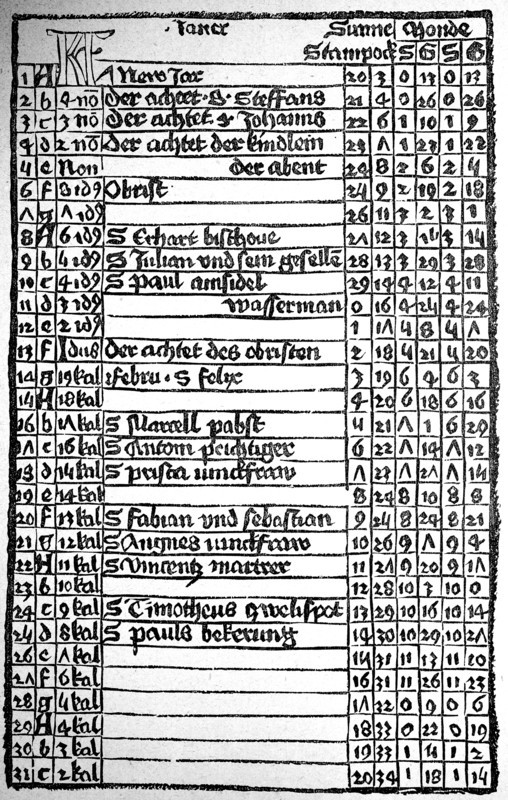 KL Janer Sunne Monde
Stampock S G S G
1 A New Jar 20 3 0 13 0 13
2 b 4 nō Der achtet · S · Steffans 21 5 0 26 0 26
3 c 3 nō Der achtet S Johanns 22 6 1 10 1 9
4 d 2 nō Der achtet der kindlein 23 7 1 23 1 22
5 e Non Der abent 24 8 2 6 2 5
6 f 8 id9 Obrist 25 9 2 19 2 18
7 g 7 id9 26 11 3 2 3 1
8 A 6 id9 S Erhart bischoue 27 12 3 16 3 14
9 b 5 id9 S Julian vnd sein geselle 28 13 3 29 3 28
10 c 4 id9 S paul ainsidel 29 15 4 12 4 11
11 d 3 id9 Wasserman 0 16 4 25 4 24
12 e 2 id9 1 17 5 8 5 7
13 f Idus Der achtet des obristen 2 18 5 21 5 20
14 g 19 kal Febru · S felix 3 19 6 4 6 3
15 A 18 kal 4 20 6 18 6 16
16 b 17 kal S Marcell pabst 5 21 7 1 6 29
17 c 16 kal S Antoni peichtiger 6 22 7 14 7 12
18 d 15 kal S prisca iunckfraw 7 23 7 27 7 25
19 e 14 kal 8 24 8 10 8 8
20 f 13 kal S Fabian vnd sebastian 9 25 8 24 8 21
21 g 12 kal S Angnes iunckfraw 10 26 9 7 9 4
22 A 11 kal S Vincentz martrer 11 27 9 20 9 17
23 b 10 kal 12 28 10 3 10 0
24 c 9 kal S Timotheus zwelifpot 13 29 10 16 10 14
25 d 8 kal S pauls bekerung 14 30 10 29 10 27
26 e 7 kal 15 31 11 13 11 10
27 f 6 kal 16 31 11 26 11 23
28 g 5 kal 17 32 0 9 0 6
29 A 4 kal 18 33 0 22 0 19
30 b 3 kal 19 33 1 5 1 2
31 c 2 kal 20 34 1 18 1 15